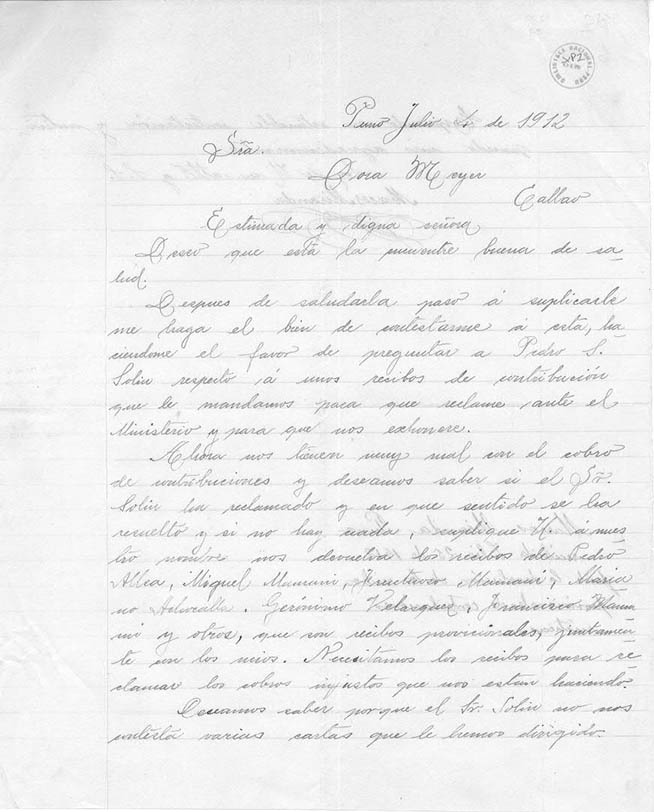 BIBLIOTECA NACIONAL PERU
Puno Julio 4 de 1912
Sña.
Dora Meyer
Callao
Estimada y digna señora
Deseo que está la encuentre buena de sa-
lud.
Despues de saludarla paso á suplicarle
me haga el bien de contestarme á esta, ha-
ciendome el favor de preguntar a Pedro S.
Solin respecto á unos recibos de contribución
que le mandamos para que reclame ante el
Ministerio y para que nos exhonere.
Ahora nos tienen muy mal con el cobro
de contribuciones y deseamos saber si el Sr.
Solin ha reclamado y en que sentido se ha
resuelto y si no hay nada, suplique U. á nues-
tro nombre nos devuelva los recibos de Pedro
Allca, Miguel Mamani, Fructuoso Mamani, Maria
no . Gerónimo Velasquez, Francisco Mama
ni y otros, que son recibos provicionales, juntamen-
te con los mios. Necesitamos los recibos para re-
clamar los cobros injustos que nos estan haciendo.
Deseamos saber porque el Sr. Solin no nos
contesta varias cartas que le hemos dirigido.